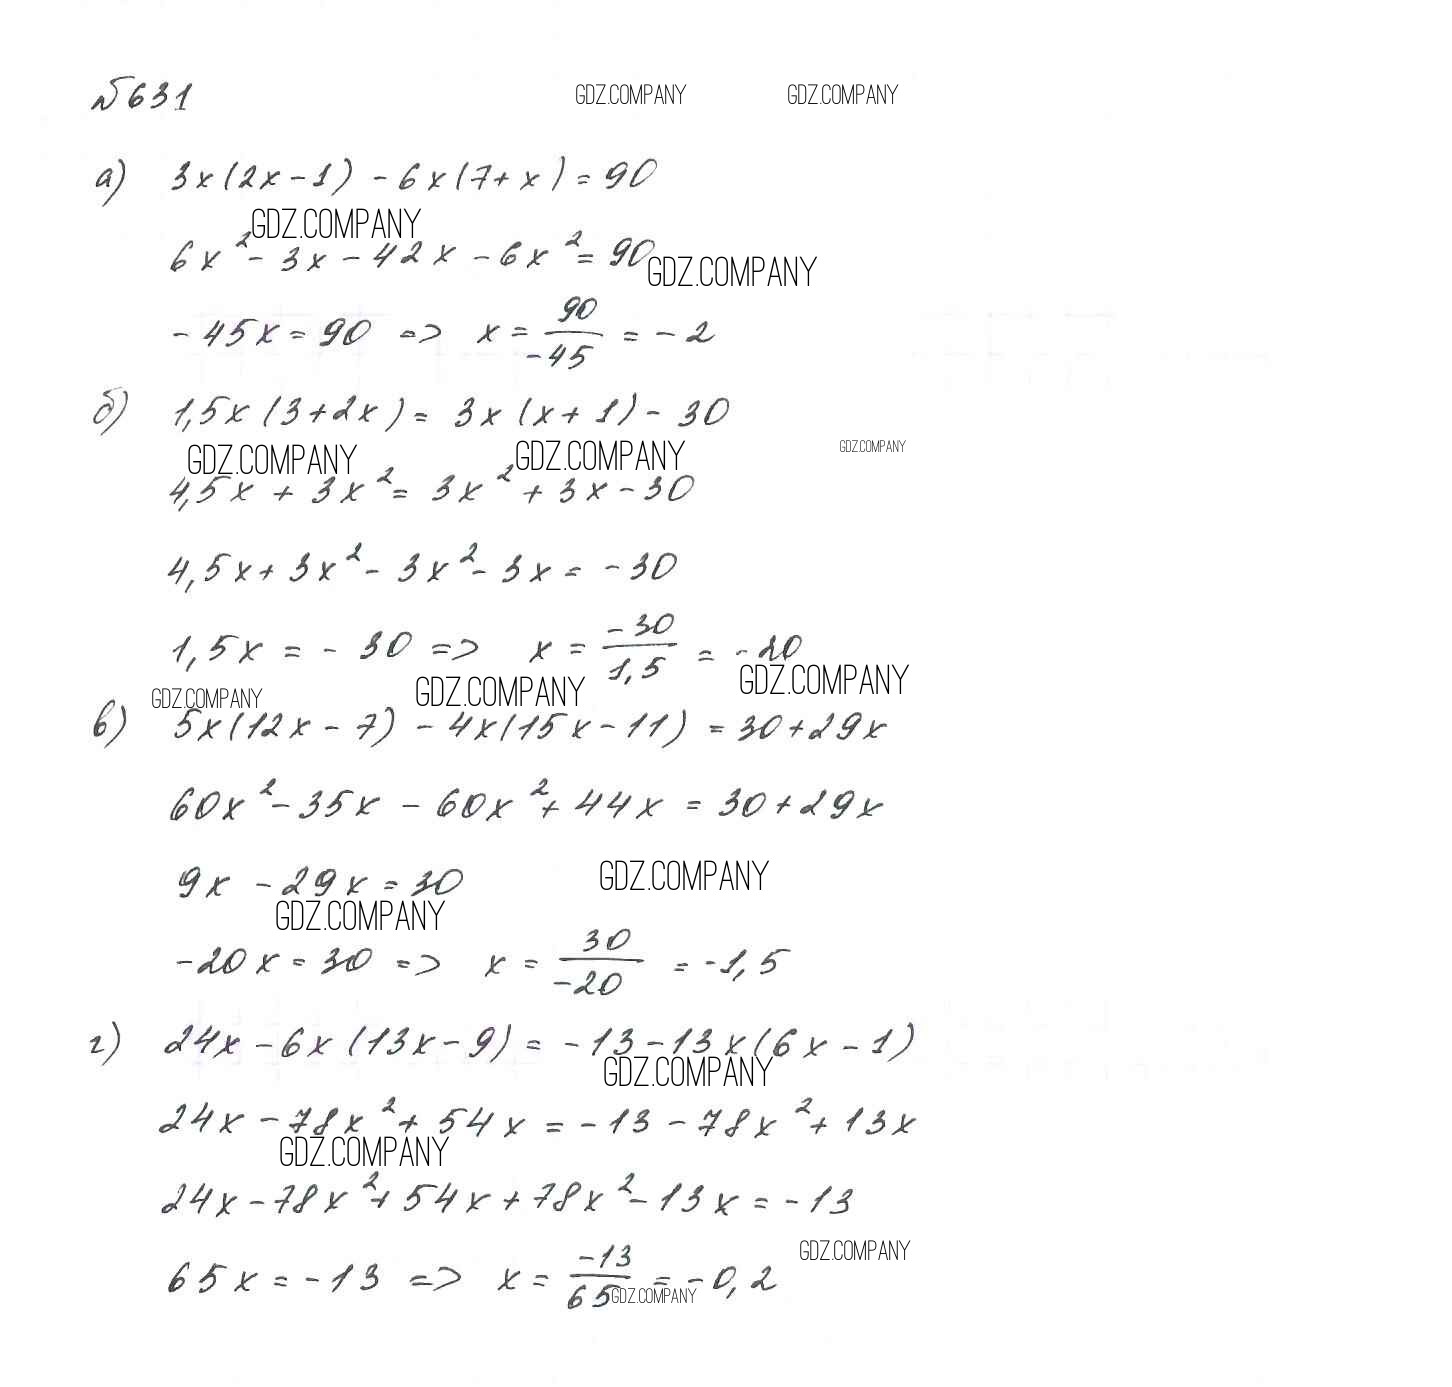 №631
GDZ.COMPANY GDZ.COMPANY
а) 3x(2x-1) - 6x(7+x) = 90
GDZ.COMPANY
6x² - 3x - 42x - 6x² = 90
GDZ.COMPANY
-45x = 90 => x = 90/-45 = -2
б) 1,5x(3+2x) = 3x(x+1) - 30
GDZ.COMPANY GDZ.COMPANY GDZ.COMPANY
4,5x + 3x² = 3x² + 3x - 30
4,5x + 3x² - 3x² - 3x = -30
1,5x = -30 => x = -30/1,5 = -20
GDZ.COMPANY GDZ.COMPANY GDZ.COMPANY
в) 5x(12x-7) - 4x(15x-11) = 30+29x
60x² - 35x - 60x² + 44x = 30+29x
9x - 29x = 30
GDZ.COMPANY
GDZ.COMPANY
-20x = 30 => x = 30/-20 = -1,5
г) 24x - 6x(13x-9) = -13-13x(6x-1)
GDZ.COMPANY
24x - 78x² + 54x = -13 - 78x² + 13x
GDZ.COMPANY
24x - 78x² + 54x + 78x² - 13x = -13
GDZ.COMPANY
65x = -13 => x = -13/65 = -0,2
GDZ.COMPANY